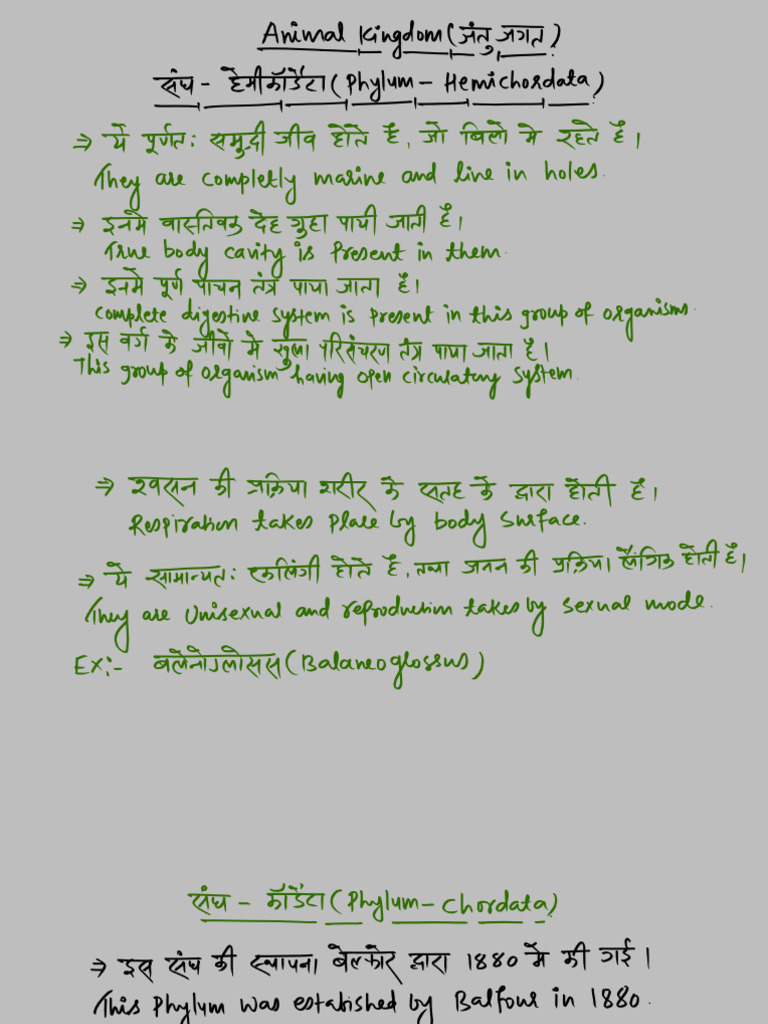 Animal Kingdom (जंतु जगत)
संघ - हेमीकॉर्डेटा (Phylum - Hemichordata)
⇒ ये पूर्णत: समुद्री जीव होते हैं, जो बिलो मे रहते हैं।
They are completly marine and live in holes.
⇒ इनमे वास्तविक देह गुहा पायी जाती हैं।
True body cavity is Present in them.
⇒ इनमे पूर्ण पाचन तंत्र पाया जाता हैं।
complete digestive system is present in this group of organisms.
⇒ इस वर्ग के जीवों मे खुला परिसंचरण तंत्र पाया जाता हैं।
This group of organism having open circulatory system.
⇒ श्वसन की प्रक्रिया शरीर के सतह के द्वारा होती हैं।
Respiration takes place by body surface.
⇒ ये सामान्यत: एकलिंगी होते हैं, तथा जनन की प्रक्रिया लैंगिक होती हैं।
They are Unisexual and reproduction takes by sexual mode.
Ex:- बलेनोग्लोसस (Balaneoglossus)
संघ - कॉर्डेटा (Phylum - Chordata)
⇒ इस संघ की स्थापना बेल्फोर द्वारा 1880 मे की गई।
This Phylum was estabished by Balfour in 1880.